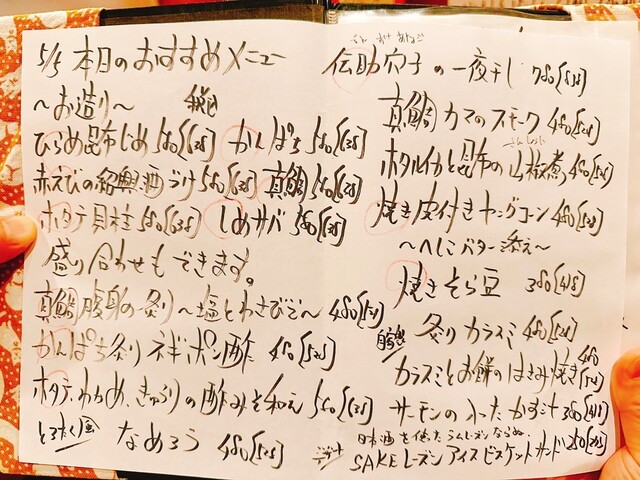 5/5 本日のおすすめメニュー
〜お造り〜 税込
ひらめ昆布じめ 580[638] かんぱち 580[638]
赤えびの紹興酒づけ 580[638] 真鯛 580[638]
ホタテ貝柱 580[638] しめサバ 580[638]
盛り合わせもできます。
真鯛腹身の炙り〜塩とわさびで〜 480[528]
かんぱち炙り ネギポン酢 480[528]
ホタテ、わかめ、きゅうりの酢みそ和え 580[638]
とろたく風 なめろう 480[528]
でんすけあなご
伝助穴子の一夜干し 780[858]
真鯛カマのスモーク 480[528]
さんしょうに
ホタルイカと昆布の山椒煮 480[528]
焼き皮付きヤングコーン 480[528]
〜へしこバター添え〜
焼きそら豆 380[418]
自家製 炙りカラスミ 480[528]
カラスミとお餅のはさみ焼き 480[528]
サーモンの入ったかす汁 380[418]
日本酒を使ったラムレーズンならぬ
SAKEレーズンアイスビスケットサンド